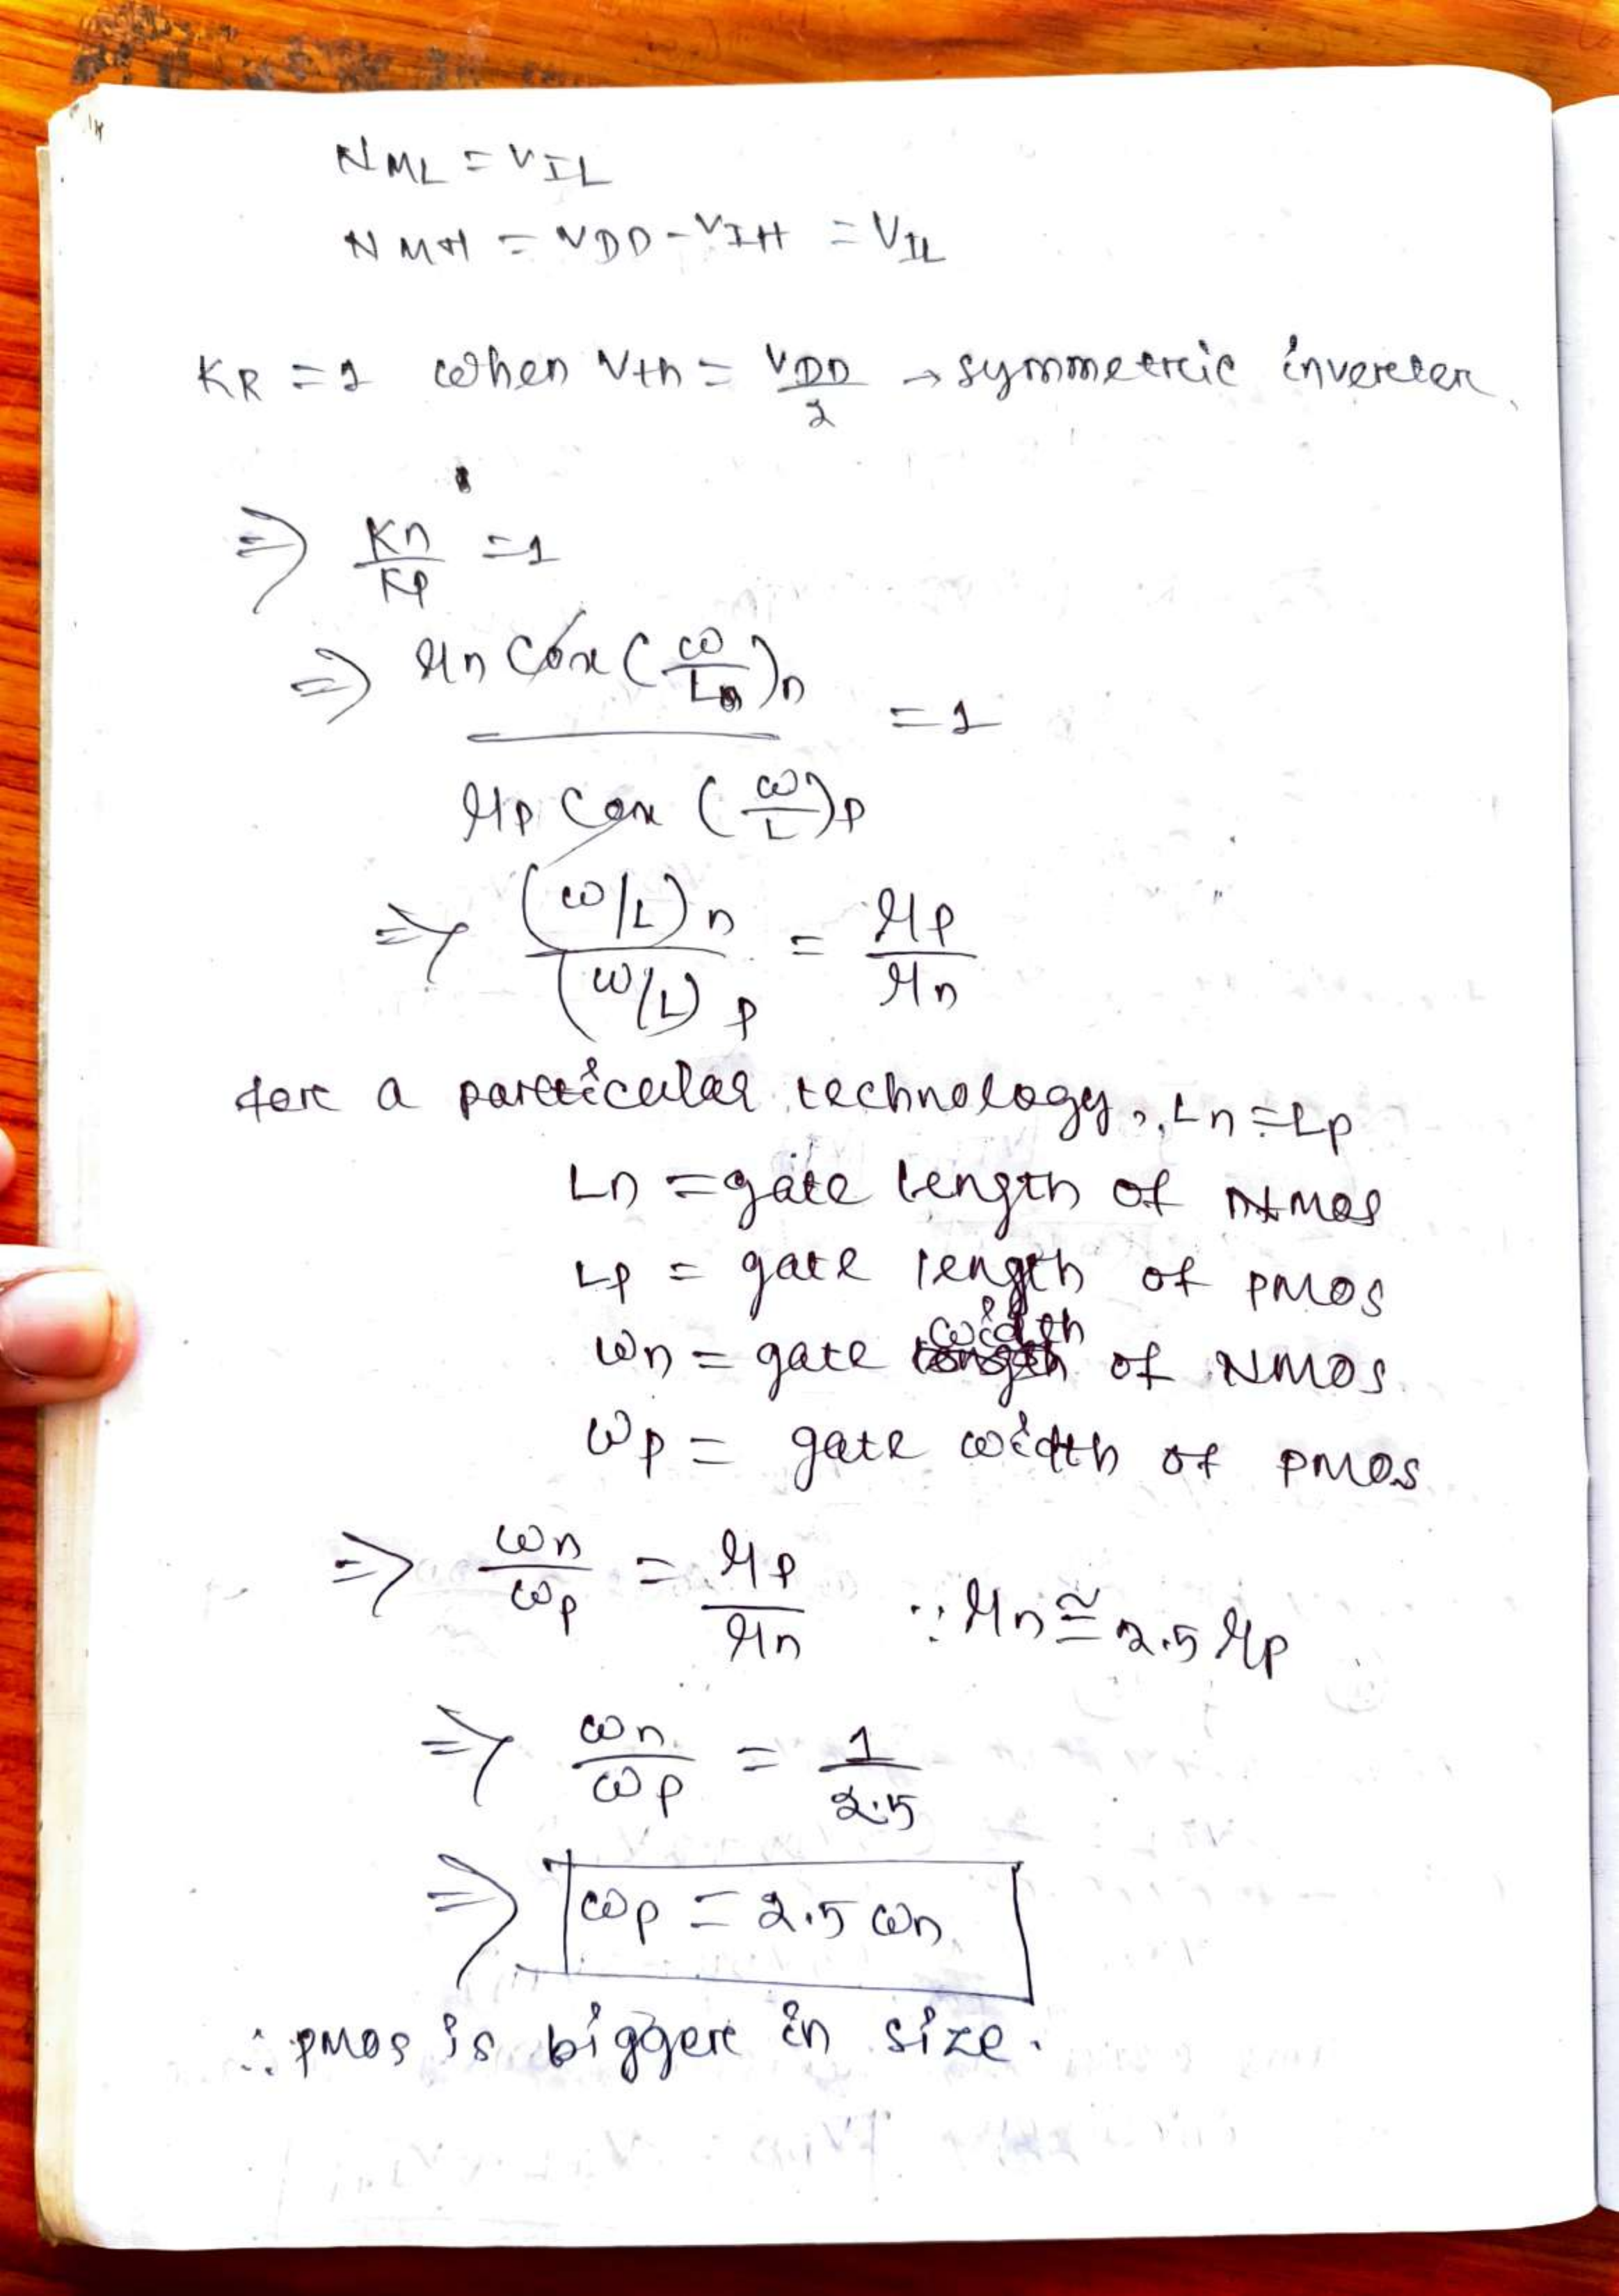 NML = VIL
NMH = VDD - VIH = VIL
KR = 1 when Vth = VDD/2 → symmetric inverter.
⇒ Kn/Kp = 1
⇒ μn Cox (W/L)n / μp Cox (W/L)p = 1
⇒ (W/L)n / (W/L)p = μp/μn
for a particular technology, Ln = Lp
Ln = gate length of NMOS
Lp = gate length of PMOS
Wn = gate width of NMOS
Wp = gate width of PMOS
⇒ Wn/Wp = μp/μn ∵ μn ≅ 2.5 μp
⇒ Wn/Wp = 1/2.5
⇒ Wp = 2.5 Wn
∴ PMOS is bigger in size.